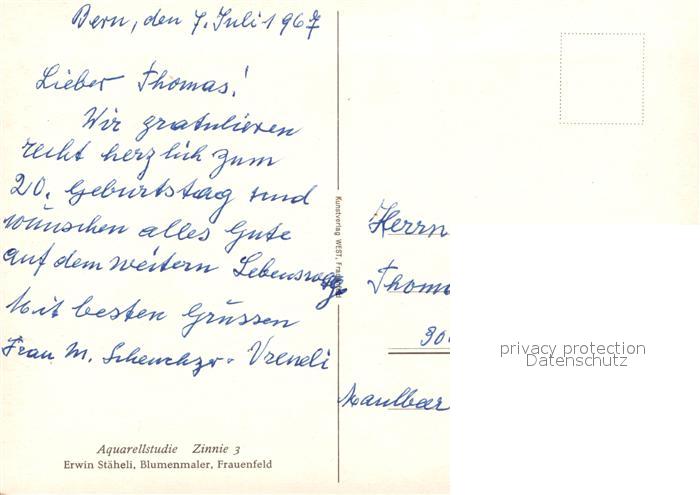 Bern, den 7. Juli 1967
Lieber Thomas!
Wir gratulieren
recht herzlich zum
20. Geburtstag und
wünschen alles Gute
auf dem weitern Lebensweg
Mit besten Grüssen
Frau M. Scheuchzer - Vreneli
Aquarellstudie Zinnie 3
Erwin Stäheli, Blumenmaler, Frauenfeld
Kunstverlag WEST, Frauenfeld
Herrn
Thom
30
Maulbee
privacy protection
Datenschutz